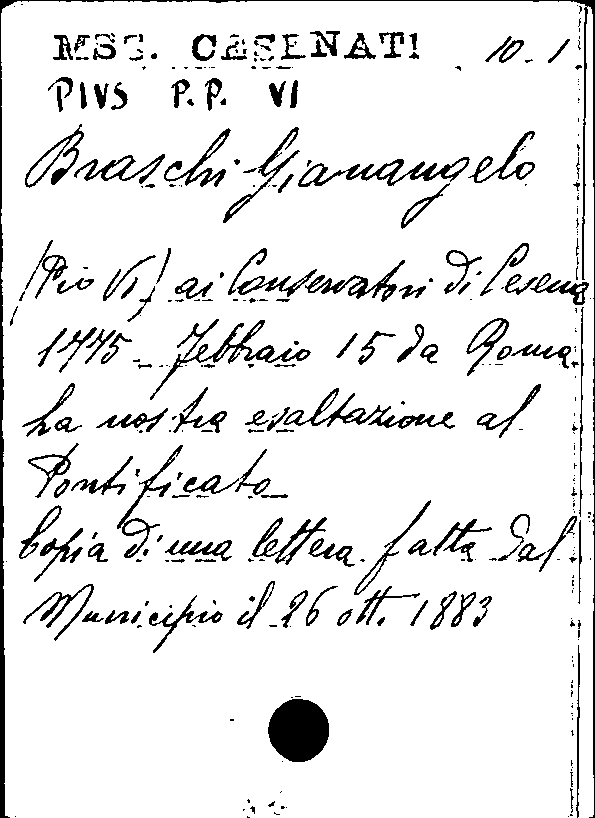 MSS. CESENATI 10.1
PIVS P.P. VI
Braschi Gianangelo
(Pio VI) ai Conservatori di Cesena
1775 Febbraio 15 da Roma
La nostra esaltazione al
Pontificato
Copia di una lettera fatta dal
Municipio il 26 ott. 1883